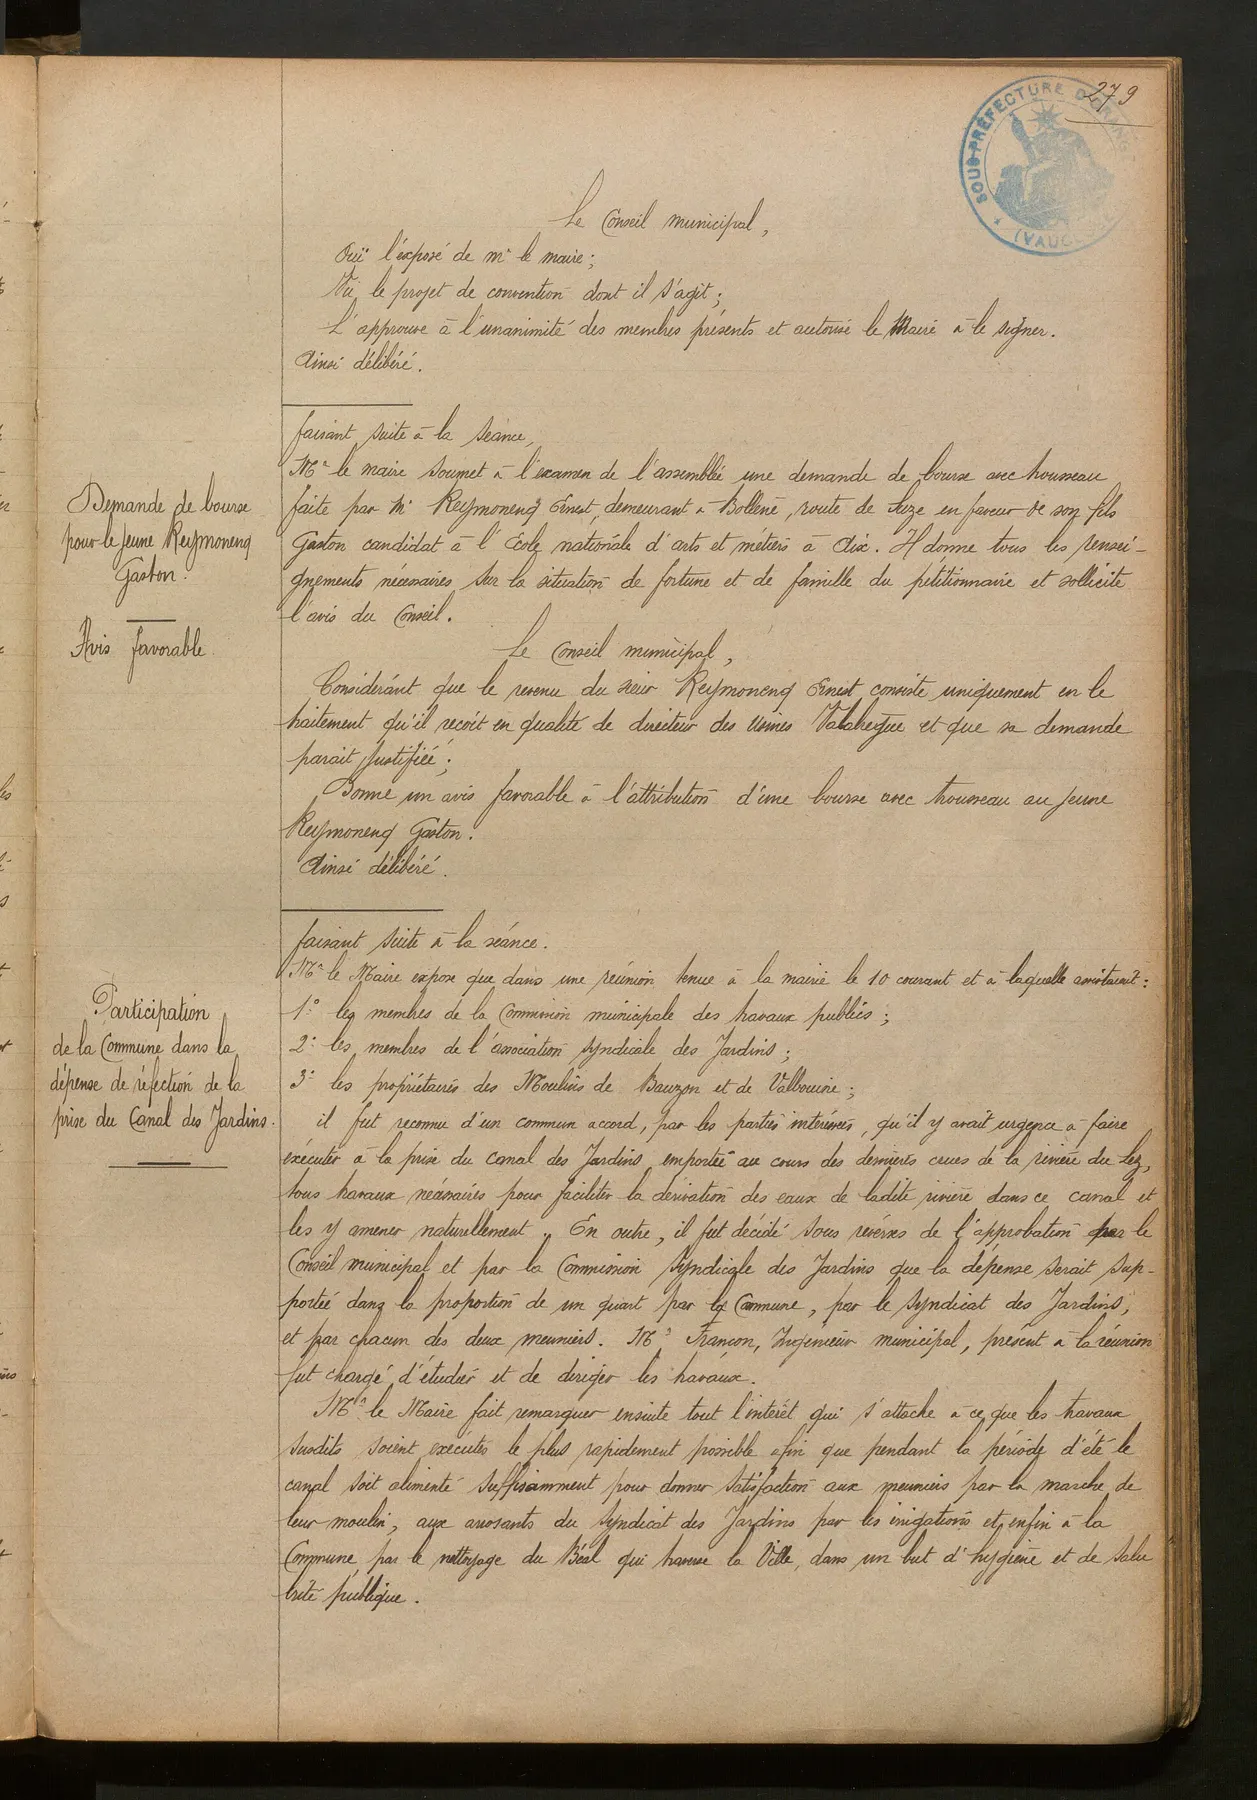 279
SOUS-PRÉFECTURE D'ORANGE
(VAUC
Le Conseil municipal,
Ouï l'exposé de Mr le maire ;
Vu le projet de convention dont il s'agit ;
L'approuve à l'unanimité des membres présents et autorise le Maire à le signer.
Ainsi délibéré.
faisant suite à la séance,
Mr le maire soumet à l'examen de l'assemblée une demande de bourse avec trousseau
faite par Mr Reymoneng Ernest, demeurant à Bollène, route de Suze en faveur de son fils
Gaston candidat à l'École nationale d'arts et métiers à Aix. Il donne tous les rensei-
gnements nécessaires sur la situation de fortune et de famille du pétitionnaire et sollicite
l'avis du Conseil.
Demande de bourse
pour le jeune Reymoneng
Gaston.
Avis favorable.
Le Conseil municipal,
Considérant que le revenu du sieur Reymoneng Ernest consiste uniquement en le
traitement qu'il reçoit en qualité de directeur des Usines Valabregue et que sa demande
parait justifiée ;
Donne un avis favorable à l'attribution d'une bourse avec trousseau au jeune
Reymoneng Gaston.
Ainsi délibéré.
faisant suite à la séance.
Mr le Maire expose que dans une réunion tenue à la mairie le 10 courant et à laquelle assistaient :
1° les membres de la Commission municipale des travaux publics ;
2° les membres de l'association syndicale des Jardins ;
3° les propriétaires des Moulins de Bauzon et de Valbourine ;
il fut reconnu d'un commun accord, par les parties intéressées, qu'il y avait urgence à faire
exécuter à la prise du canal des Jardins emportée au cours des dernières crues de la rivière du Lez,
tous travaux nécessaires pour faciliter la dérivation des eaux de ladite rivière dans ce canal et
les y amener naturellement. En outre, il fut décidé sous réserves de l'approbation par le
Conseil municipal et par la Commission Syndicale des Jardins que la dépense serait sup-
portée dans la proportion de un quart par la Commune, par le Syndicat des Jardins,
et par chacun des deux meuniers. Mr Francon, Ingénieur municipal, présent à la réunion
fut chargé d'étudier et de diriger les travaux.
Participation
de la Commune dans la
dépense de réfection de la
prise du Canal des Jardins.
Mr le Maire fait remarquer ensuite tout l'intérêt qui s'attache à ce que les travaux
susdits soient exécutés le plus rapidement possible afin que pendant la période d'été le
canal soit alimenté suffisamment pour donner satisfaction aux meuniers par la marche de
leur moulin, aux arrosants du Syndicat des Jardins par les irrigations et, enfin à la
Commune par le nettoyage du Béal qui traverse la Ville, dans un but d'hygiène et de salu
brité publique.